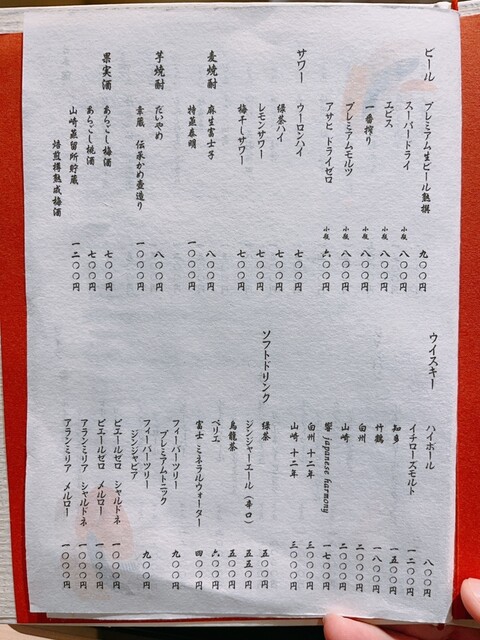 ビール
プレミアム生ビール熟撰 九〇〇円
スーパードライ 小瓶 八〇〇円
ヱビス 小瓶 八〇〇円
一番搾り 小瓶 八〇〇円
プレミアムモルツ 小瓶 八〇〇円
アサヒ ドライゼロ 小瓶 六〇〇円
サワー
ウーロンハイ 七〇〇円
緑茶ハイ 七〇〇円
レモンサワー 七〇〇円
梅干しサワー 七〇〇円
麦焼酎
麻生富士子 八〇〇円
特蒸泰明 一〇〇〇円
芋焼酎
だいやめ 八〇〇円
幸蔵 伝承かめ壷造り 一〇〇〇円
果実酒
あらごし梅酒 七〇〇円
あらごし桃酒 七〇〇円
山崎蒸留所貯蔵
焙煎樽熟成梅酒 一二〇〇円
ウイスキー
ハイボール 八〇〇円
イチローズモルト 一二〇〇円
知多 一五〇〇円
竹鶴 一八〇〇円
白州 二〇〇〇円
山崎 二〇〇〇円
響 japanese harmony 一七〇〇円
白州 十二年 三〇〇〇円
山崎 十二年 三〇〇〇円
ソフトドリンク
緑茶 五〇〇円
ジンジャーエール(辛口) 五五〇円
烏龍茶 五五〇円
ペリエ 六〇〇円
富士 ミネラルウォーター 四〇〇円
フィーバーツリー
プレミアムトニック 九〇〇円
フィーバーツリー
ジンジャビア 九〇〇円
ピエールゼロ シャルドネ 一〇〇〇円
ピエールゼロ メルロー 一〇〇〇円
アランミリア シャルドネ 一〇〇〇円
アランミリア メルロー 一〇〇〇円